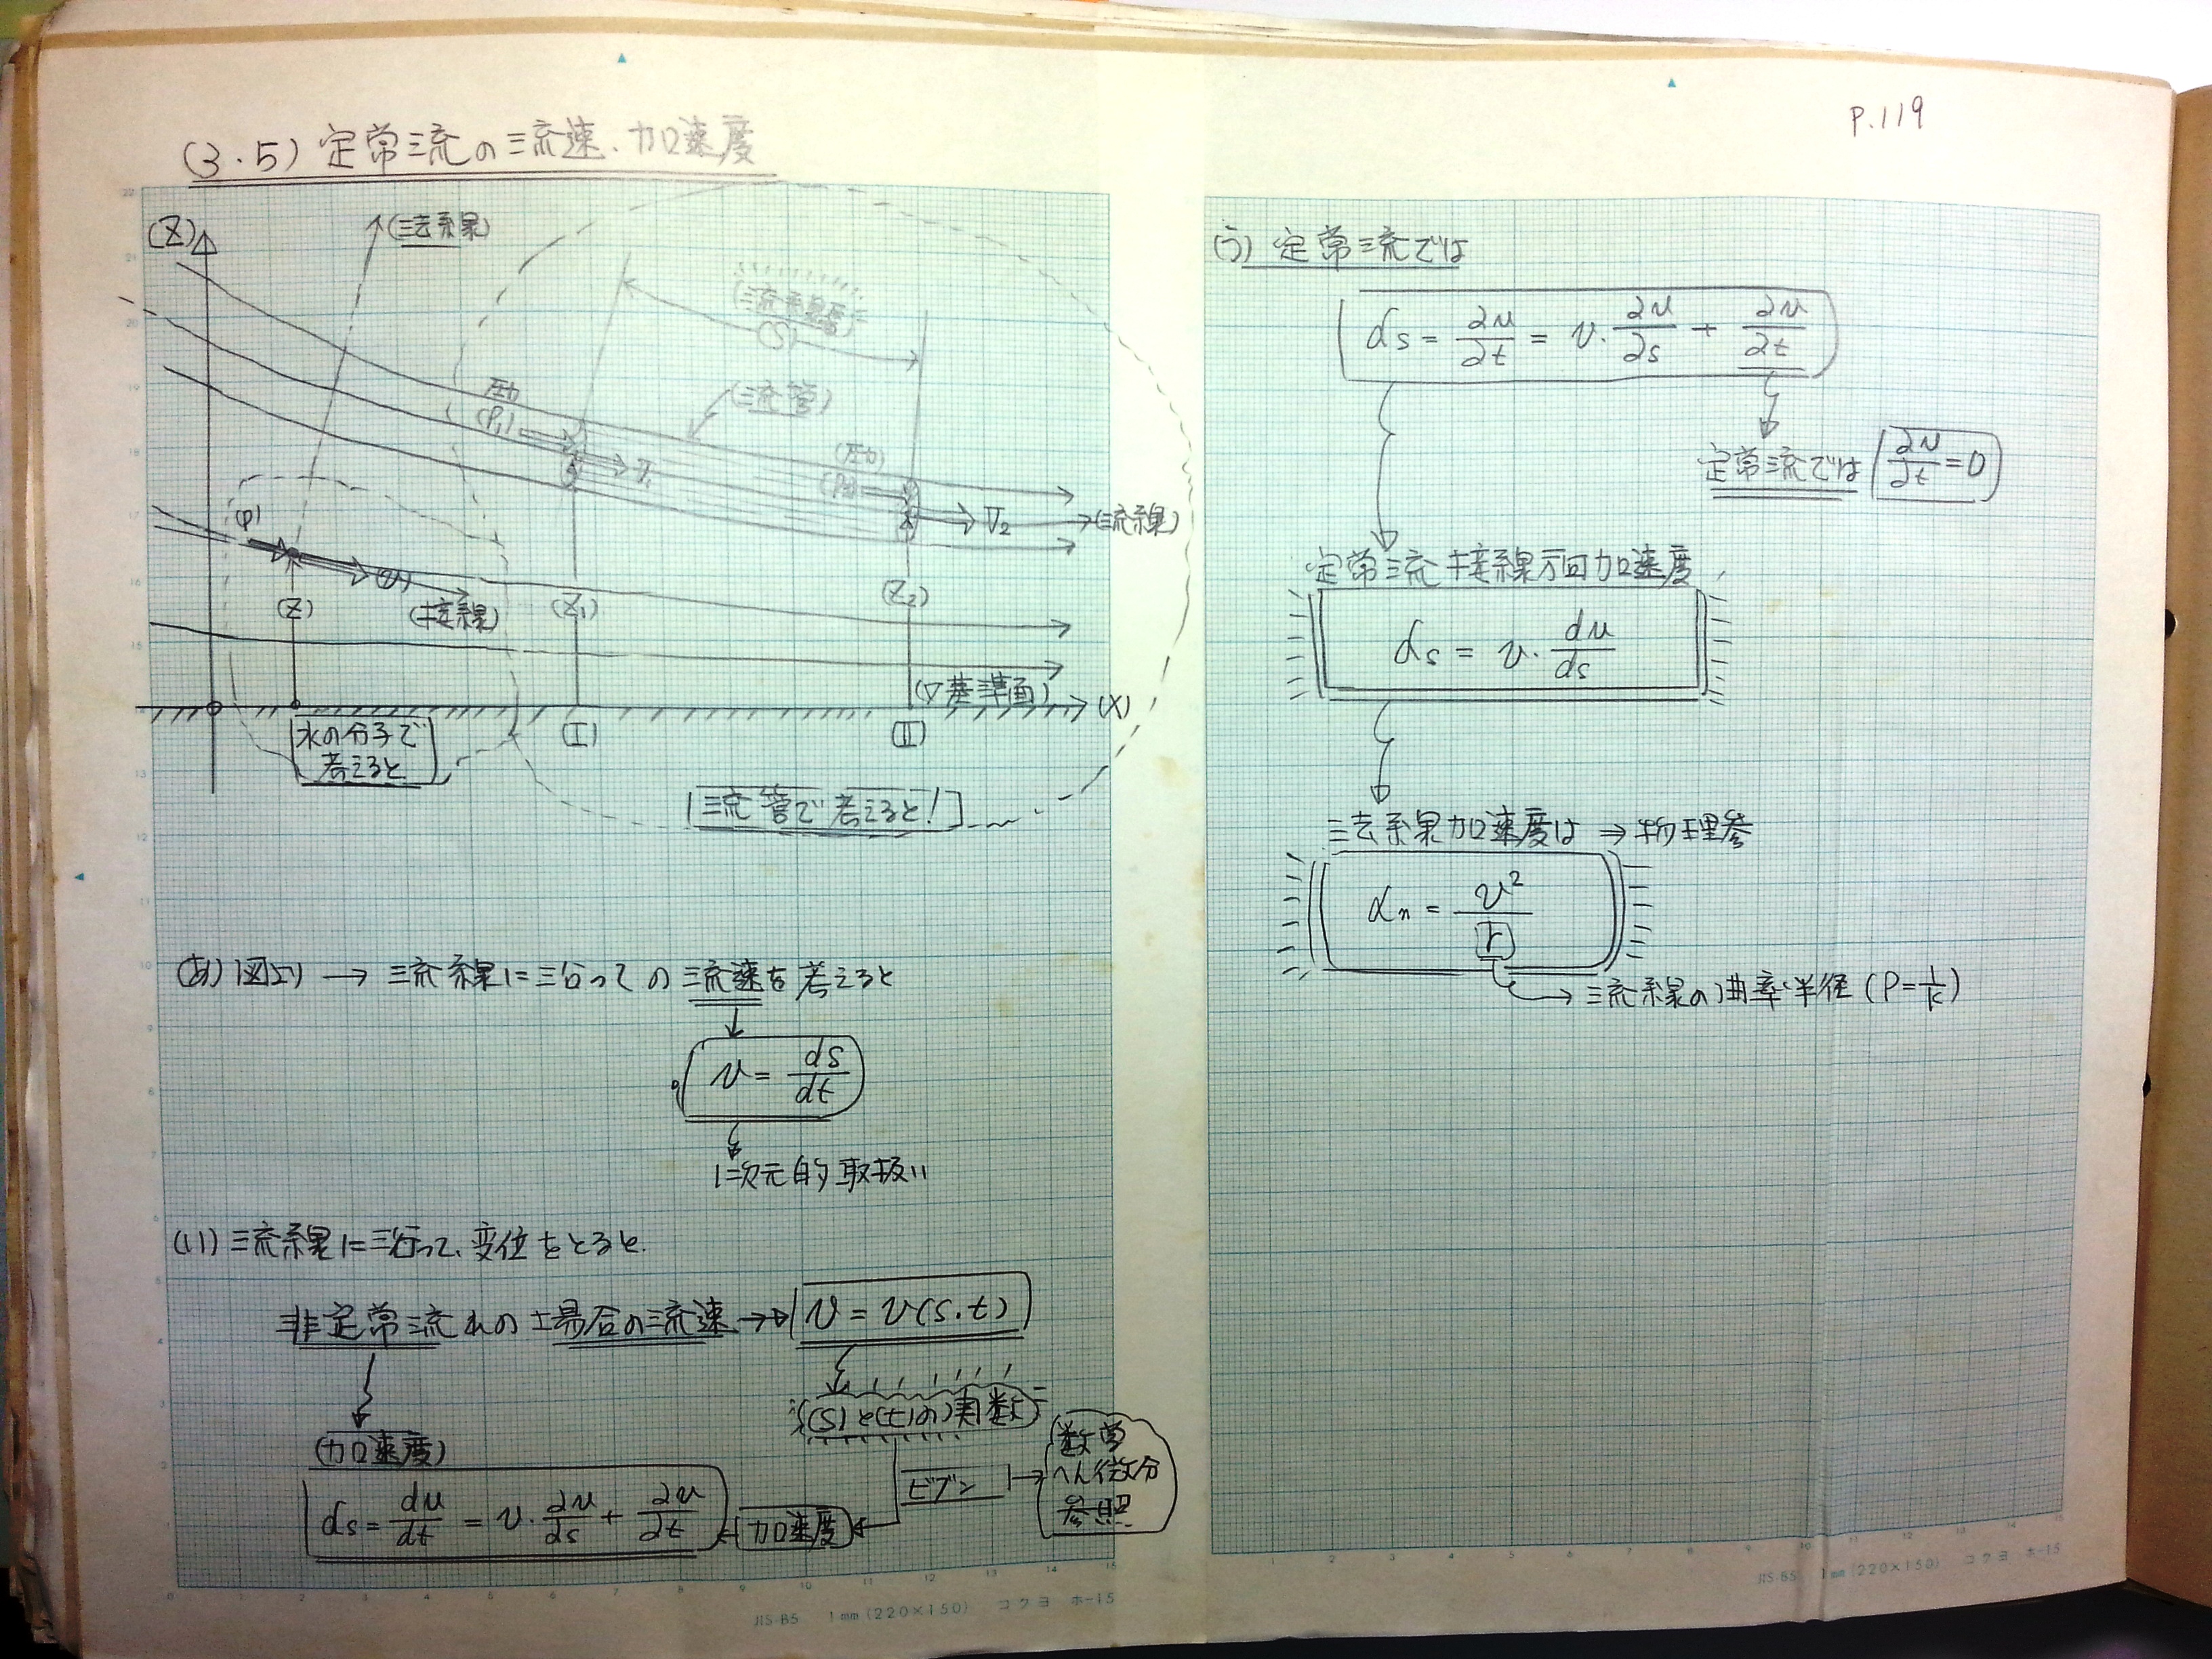 P.119
(3.5) 定常流の流速、加速度
(Z)
(法線)
(流線長)
(S)
(流管)
圧力
(P₁)
V₁
(圧力)
(P₂)
V₂
(流線)
(P)
(v)
(接線)
(Z)
(Z₁)
(Z₂)
(▽基準面)
(X)
(I)
(II)
水の分子で
考えると
流管で考えると!
(あ) 図より → 流線に沿っての流速を考えると
v = ds/dt
1次元的取扱い
(い) 流線に沿って、変位をとると、
非定常流れの場合の流速→ v = v(s.t)
(S)と(t)の関数
ビブン → 数学
へん微分
参照
(加速度)
αs = dv/dt = v・∂v/∂s + ∂v/∂t
加速度
(う) 定常流では
αs = ∂v/∂t = v・∂v/∂s + ∂v/∂t
定常流では ∂v/∂t = 0
定常流接線方向加速度
αs = v・dv/ds
法線加速度は ⇒ 物理参
αn = v²/r
→ 流線の曲率半径 (ρ = 1/k)
JIS-B5 1mm (220×150) コクヨ ホ-15
JIS-B5 1mm (220×150) コクヨ ホ-15